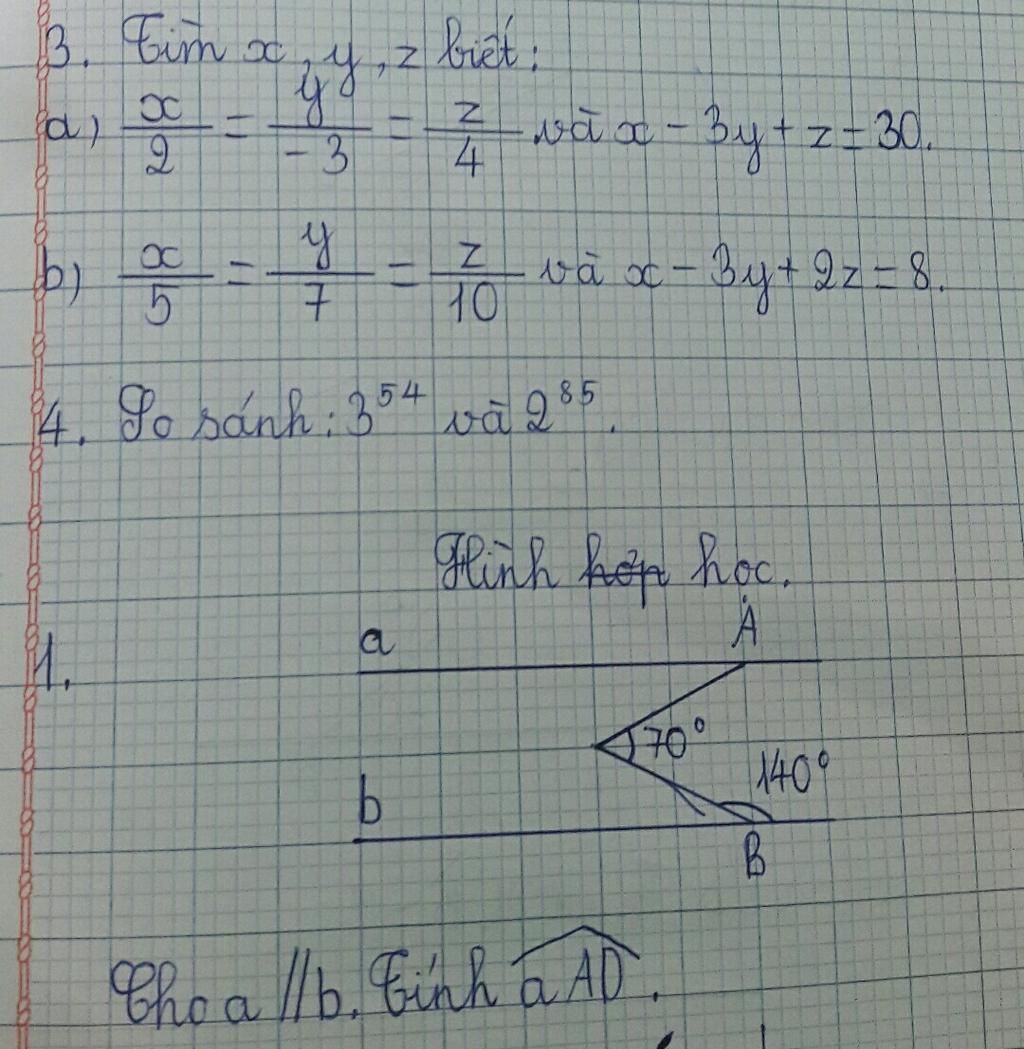 3. Tìm x, y, z biết:
a) x/2 = y/-3 = z/4 và x - 3y + z = 30.
b) x/5 = y/7 = z/10 và x - 3y + 2z = 8.
4. So sánh: 3^54 và 2^85.
Hình hợp học.
1.
a A
70°
140°
b
B
Cho a // b. Tính aAD.